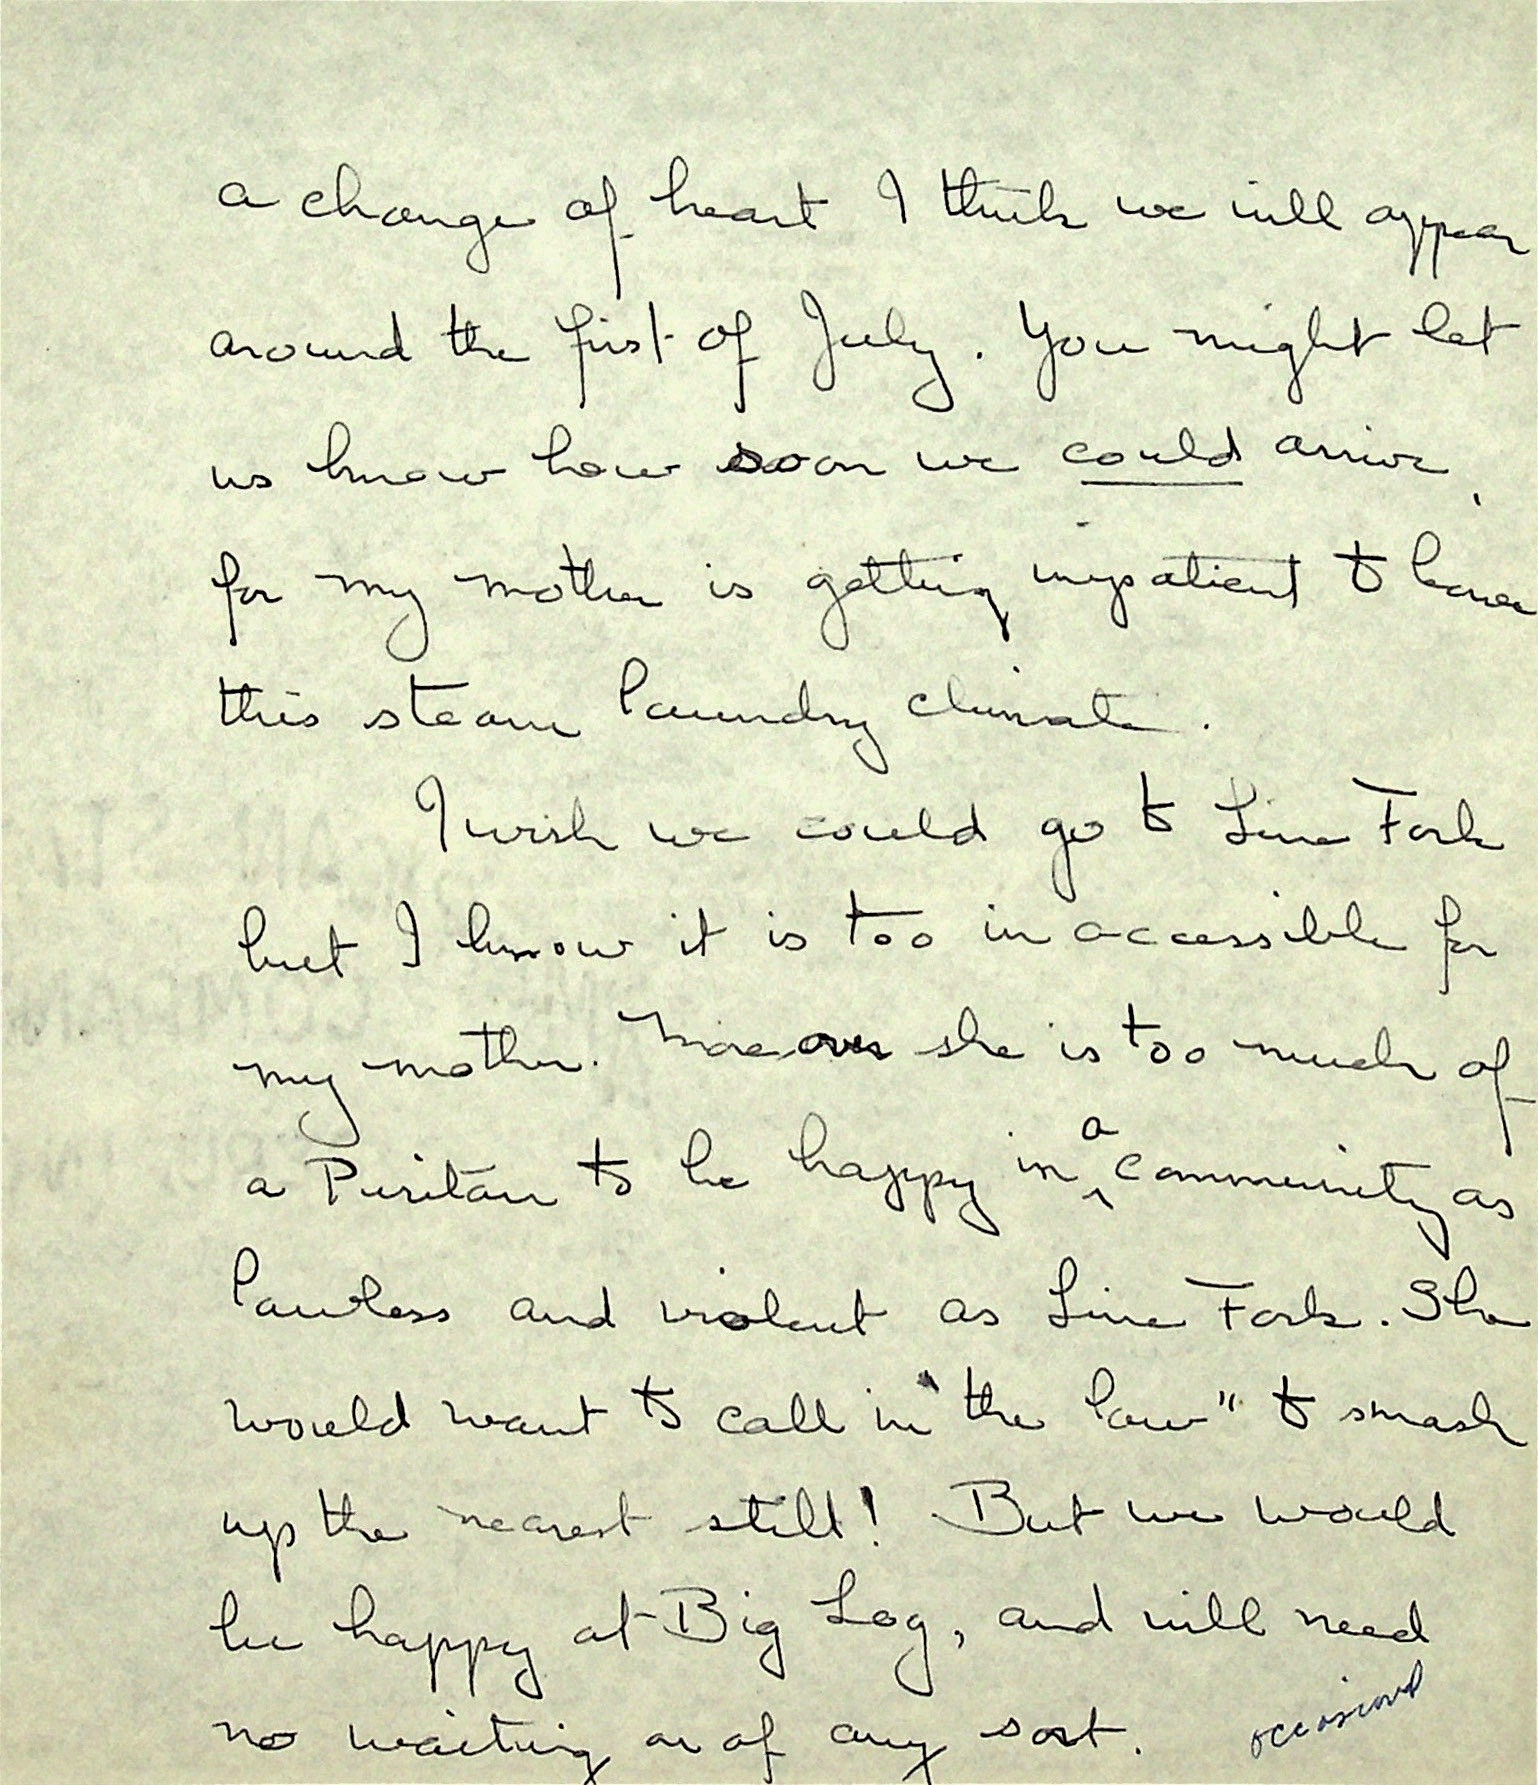 a change of heart I think we will appear
around the first of July. You might let
us know how soon we could arrive,
for my mother is getting impatient to leave
this steam laundry climate.
I wish we could go to Line Fork
but I know it is too inaccessible for
my mother. Moreover she is too much of
a Puritan to be happy in a community as
lawless and violent as Line Fork. She
would want to call in "the law" to smash
up the nearest still! But we would
be happy at Big Log, and will need
no waiting on of any sort.
occasional